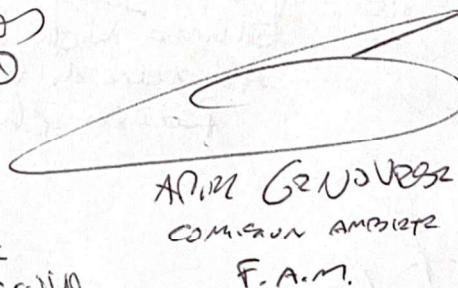 ARIEL GENOVESE
COMISION AMBIETE
F.A.M.